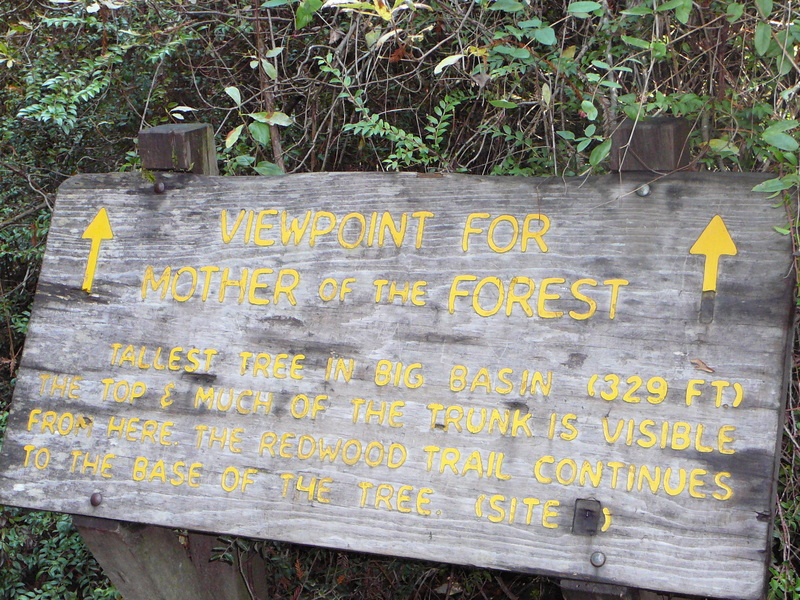 VIEWPOINT FOR
MOTHER OF THE FOREST
TALLEST TREE IN BIG BASIN (329 FT)
THE TOP & MUCH OF THE TRUNK IS VISIBLE
FROM HERE. THE REDWOOD TRAIL CONTINUES
TO THE BASE OF THE TREE. (SITE )